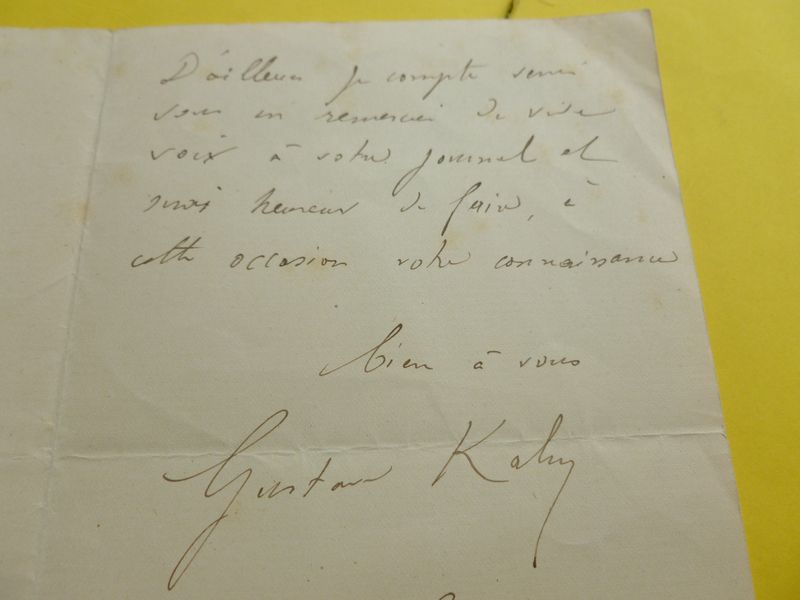 D'ailleurs je compte venir
vous en remercier de vive
voix à votre journal et
serais heureux de faire, à
cette occasion votre connaissance
bien à vous
Gustave Kahn